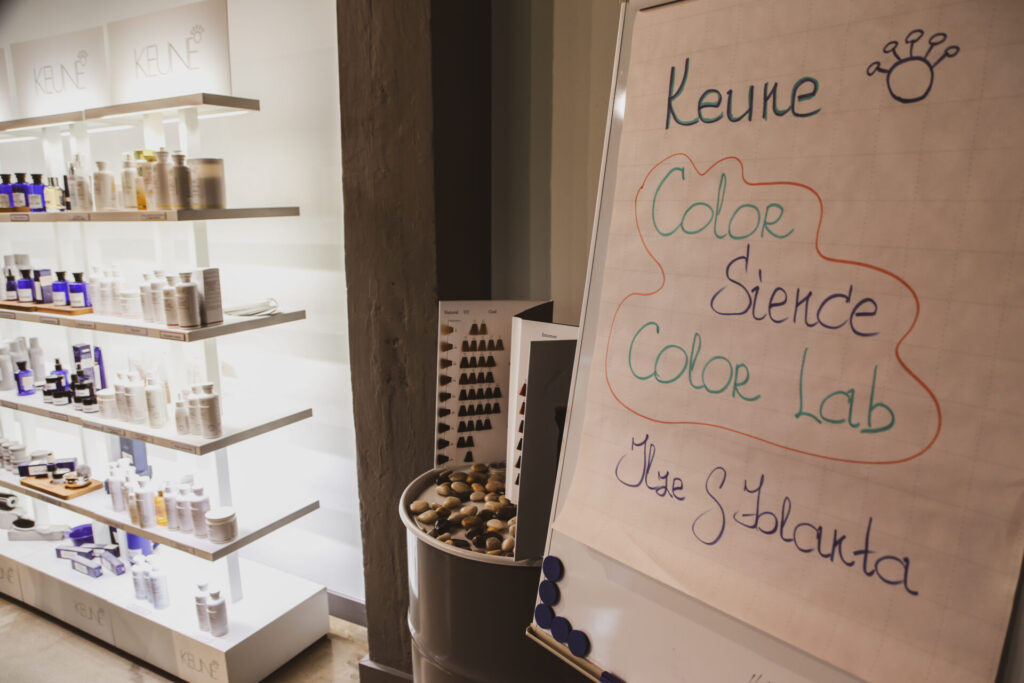 KEUNE
KEUNE
Keune
Color
Sience
Color Lab
Ilze & Iolanta
Natural
KEUNE
KEUNE